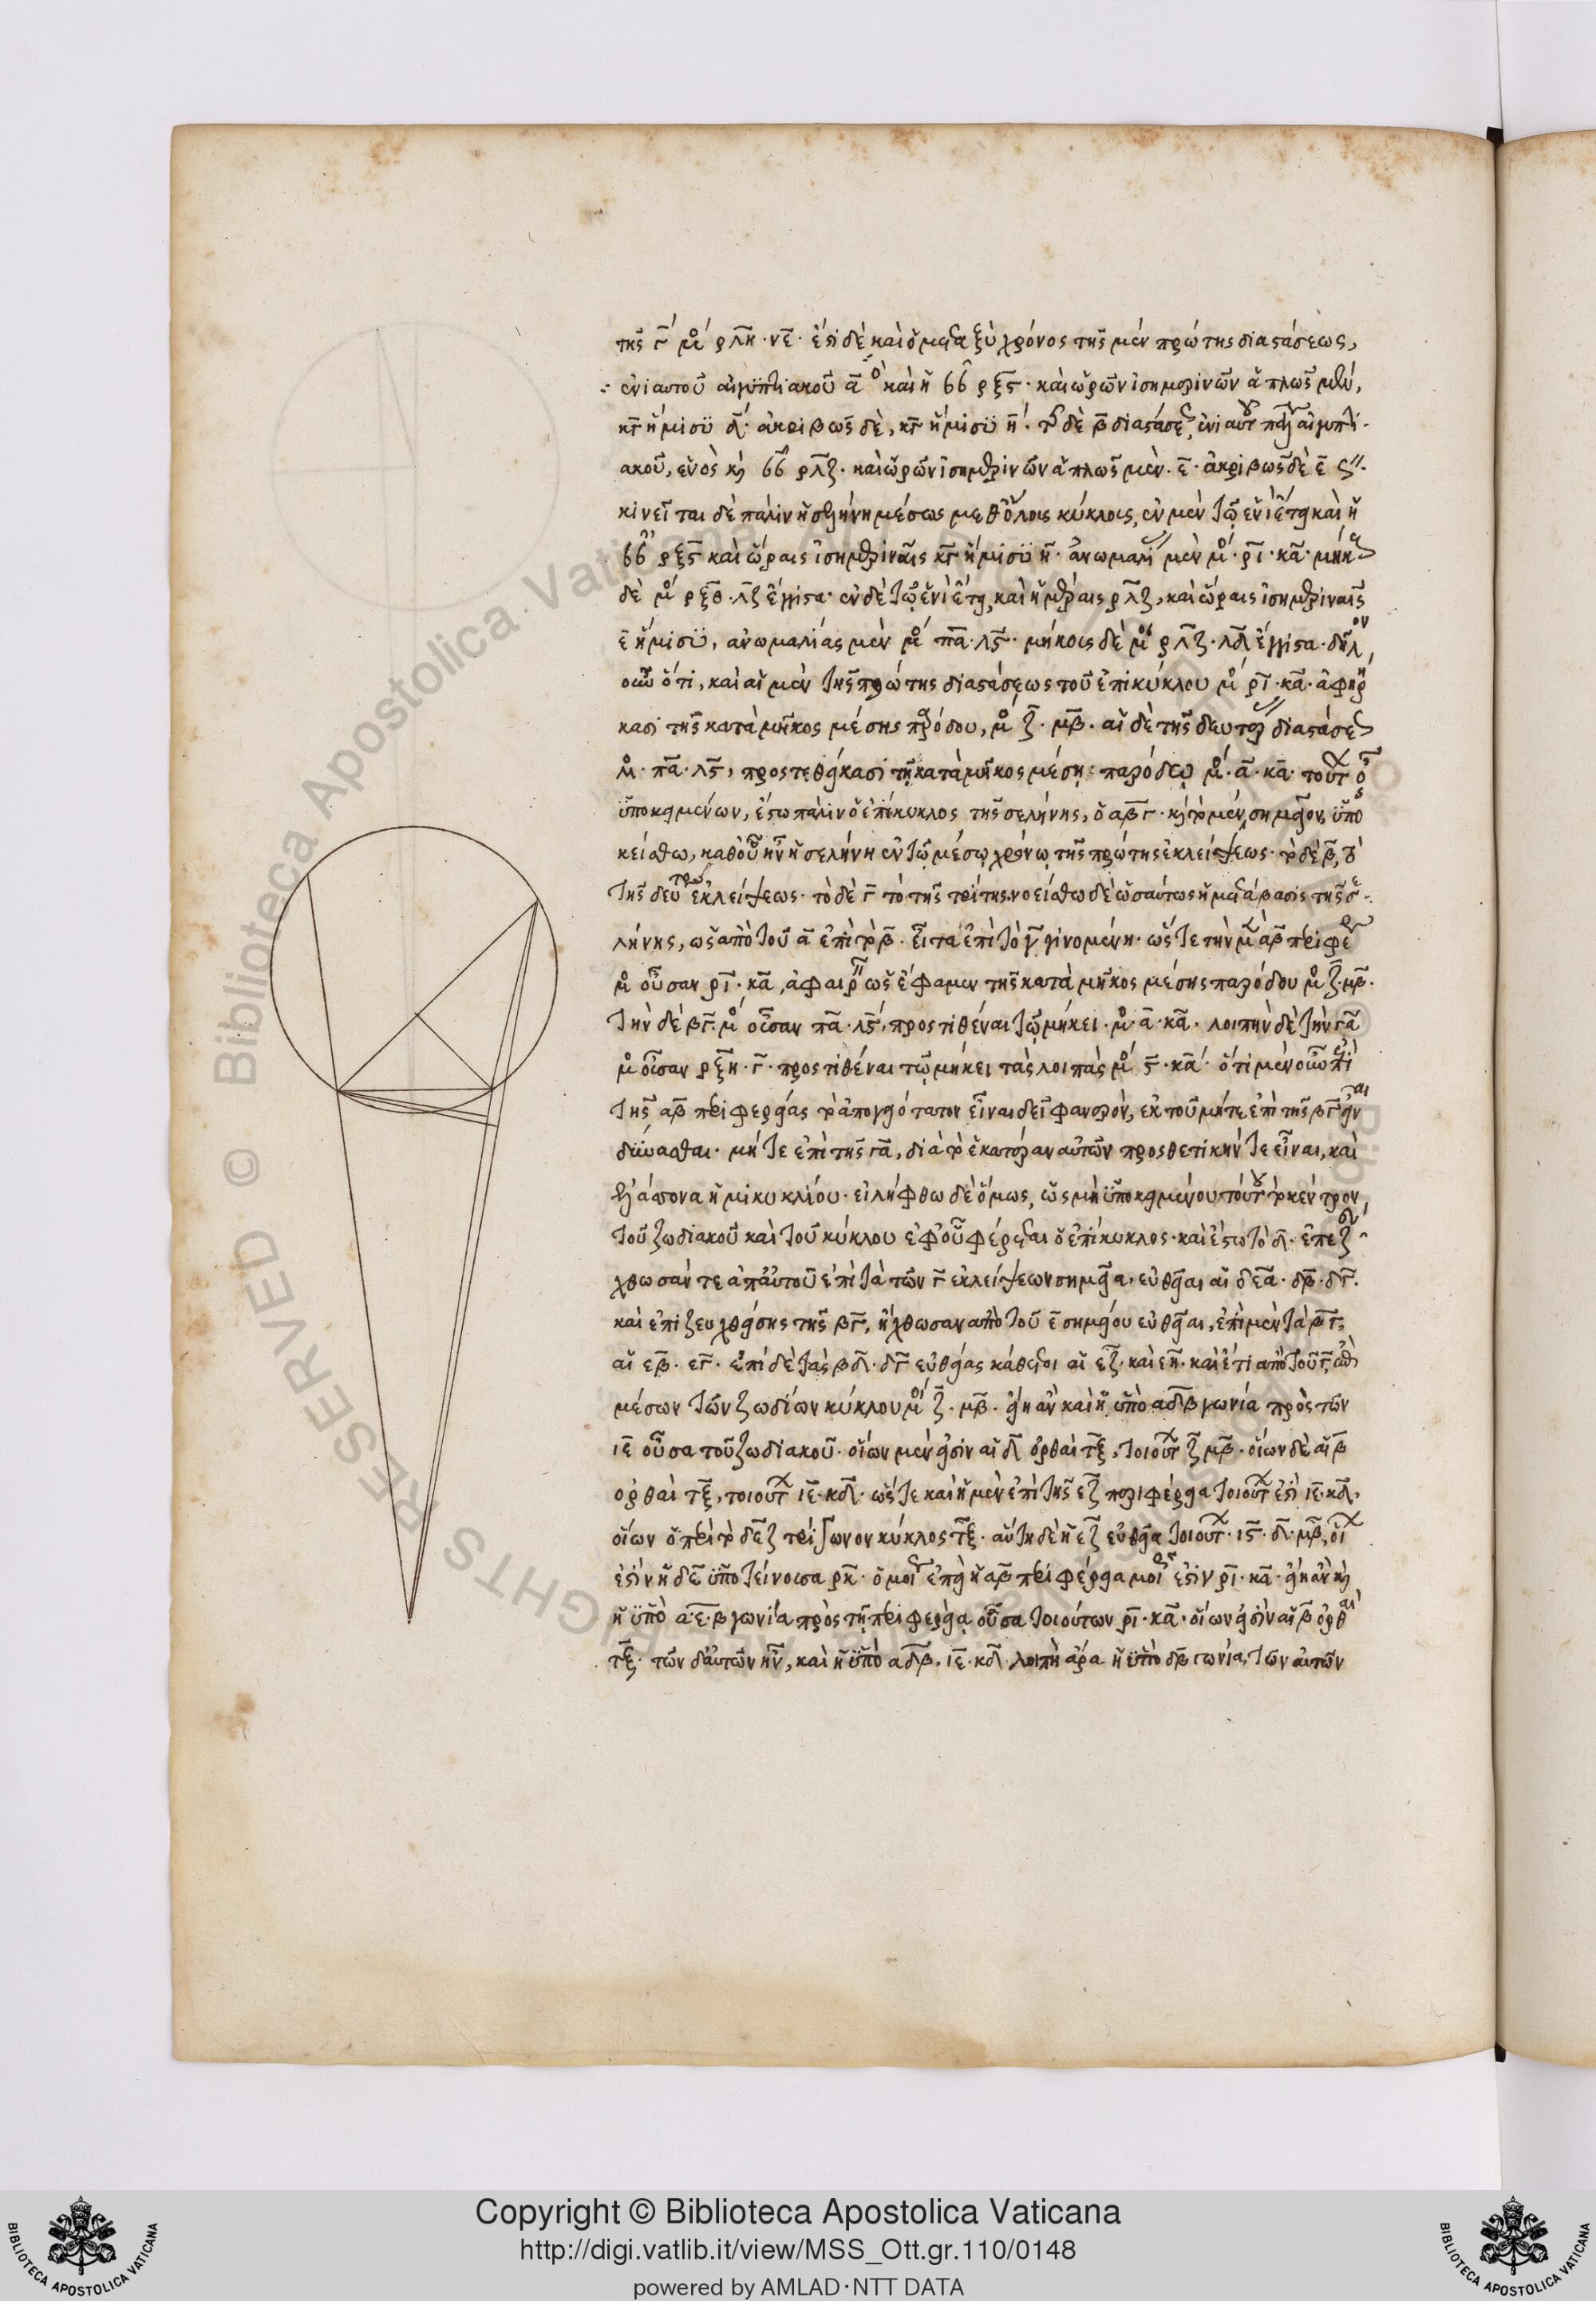 τῆς γ̄ μ̊ ρλη · νε · ἔστι δὲ καὶ ὁ μεταξὺ χρόνος τῆς μὲν πρώτης διαστάσεως,
ἐνιαυτοῦ αἰγυπτιακοῦ ᾱ καὶ ἡ ρξς · καὶ ὡρῶν ἰσημερινῶν ἁπλῶς μὲν,
κγ ἥμισυ δ · ἀκριβῶς δὲ, κγ ἥμισυ η · τῆς δὲ β διαστάσεως, πάλιν αἰγυπτι
ακοῦ, ἑνὸς καὶ ρλζ · καὶ ὡρῶν ἰσημερινῶν ἁπλῶς μὲν · ε · ἀκριβῶς δὲ ε
κινεῖται δὲ πάλιν ἡ σελήνη μέσως μεθ' ὅλους κύκλους, ἐν μὲν τῷ ἑνὶ ἔτει καὶ ἡ
ρξς καὶ ὥραις ἰσημεριναῖς κγ ἥμισυ η · ἀνωμαλίας μὲν μ̊ · ρι · κα · μήκους
δὲ μ̊ ρξθ · λζ ἔγγιστα · ἐν δὲ τῷ ἑνὶ ἔτει, καὶ ἡμέραις ρλζ, καὶ ὥραις ἰσημεριναῖς
ε ἥμισυ, ἀνωμαλίας μὲν μ̊ πα · λς · μήκους δὲ μ̊ ρλζ · λδ ἔγγιστα · δῆλον
οὖν ὅτι, καὶ αἱ μὲν τῆς πρώτης διαστάσεως τοῦ ἐπικύκλου μ̊ ρι · κα · ἀφῃρή
κασι τῆς κατὰ μῆκος μέσης παρόδου, μ̊ ζ · μβ · αἱ δὲ τῆς δευτέρας διαστάσεως
μ̊ · πα · λς, προστεθείκασι τῇ κατὰ μῆκος μέσῃ παρόδῳ μ̊ · α · κα · τούτων
ὑποκειμένων, ἔστω πάλιν ὁ ἐπίκυκλος τῆς σελήνης, ὁ αβγ · καὶ τὸ μὲν α σημεῖον, ὑπο
κείσθω, καθ' οὗ ἦν ἡ σελήνη ἐν τῷ μέσῳ χρόνῳ τῆς πρώτης ἐκλείψεως · τὸ δὲ β, τὸ
τῆς δευτέρας ἐκλείψεως · τὸ δὲ γ τὸ τῆς τρίτης. νοείσθω δὲ ὡσαύτως ἡ μετάβασις τῆς σε
λήνης, ὡς ἀπὸ τοῦ α ἐπὶ τὸ β · εἶτα ἐπὶ τὸ γ γινομένη · ὥστε τὴν μὲν αβ περιφέρειαν
μ̊ οὖσαν ρι · κα, ἀφαιρεῖν ὡς ἔφαμεν τῆς κατὰ μῆκος μέσης παρόδου μ̊ ζ · μβ ·
τὴν δὲ βγ · μ̊ οὖσαν πα · λς, προστιθέναι τῷ μήκει · μ̊ · α · κα · λοιπὴν δὲ τὴν γα
μ̊ οὖσαν ρξη · γ · προστιθέναι τῷ μήκει τὰς λοιπὰς μ̊ ς · κα · ὅτι μὲν οὖν ἐπὶ
τῆς αβ περιφερείας τὸ ἀπογειότατον εἶναι δεῖ φανερὸν, ἐκ τοῦ μήτε ἐπὶ τῆς βγ εἶναι
δύνασθαι · μήτε ἐπὶ τῆς γα, διὰ τὸ ἑκατέραν αὐτῶν προσθετικήν τε εἶναι, καὶ
ἐλάσσονα ἡμικυκλίου · εἰλήφθω δὲ ὅμως, ὡς μὴ ὑποκειμένου τούτου τὸ κέντρον,
τοῦ ζωδιακοῦ καὶ τοῦ κύκλου ἐφ' οὗ φέρεται ὁ ἐπίκυκλος · καὶ ἔστω τὸ δ · ἐπεζεύ
χθωσάν τε ἀπ' αὐτοῦ ἐπὶ τὰ τῶν γ ἐκλείψεων σημεῖα · εὐθεῖαι αἱ δεα · δβ · δγ ·
καὶ ἐπιζευχθείσης τῆς βγ, ἤχθωσαν ἀπὸ τοῦ ε σημείου εὐθεῖαι, ἐπὶ μὲν τὰ β γ,
αἱ εβ · εγ · ἐπὶ δὲ τὰς βδ · δγ εὐθείας κάθετοι αἱ εζ · καὶ εη · καὶ ἔτι ἀπὸ τοῦ γ,
μέσων τῶν ζωδίων κύκλου μ̊ ζ · μβ · εἴη ἂν καὶ ἡ ὑπὸ αδβ γωνία πρὸς τῶν
ιε οὖσα τοῦ ζωδιακοῦ · οἵων μέν εἰσιν αἱ δ ὀρθαὶ τξ, τοιούτων ζ μβ · οἵων δὲ αἱ β
ὀρθαὶ τξ, τοιούτων ιε · κδ · ὥστε καὶ ἡ μὲν ἐπὶ τῆς εζ περιφέρεια τοιούτων ἐστὶ ιε · κδ ·
οἵων ὁ περὶ τὸ δεζ τρίγωνον κύκλος τξ · αὐτὴ δὲ ἡ εζ εὐθεῖα τοιούτων · ις · δ · μβ, οἵων
ἐστὶν ἡ δε ὑποτείνουσα ρκ · ὁμοίως ἐπεὶ ἡ αβ περιφέρεια μοιρῶν ἐστιν ρι · κα · εἴη ἂν καὶ
ἡ ὑπὸ α · ε · β γωνία πρὸς τῇ περιφερείᾳ οὖσα τοιούτων ρι · κα · οἵων εἰσὶν αἱ β ὀρθαὶ
τξ · τῶν δ' αὐτῶν ἦν, καὶ ἡ ὑπὸ αδβ · ιε · κδ · λοιπὴ ἄρα ἡ ὑπὸ δβε γωνία, τῶν αὐτῶν
Copyright © Biblioteca Apostolica Vaticana
http://digi.vatlib.it/view/MSS_Ott.gr.110/0148
powered by AMLAD·NTT DATA